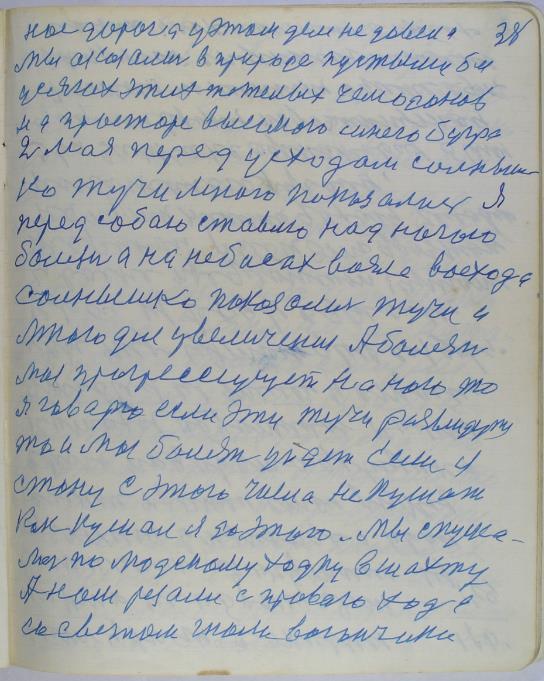 38
ное дорога у этом деле не довели
Мы оказались в природе пустыми без
усяких этих тяжелых чемоданов
на просторе высокого синего бугра
2 мая перед усходом солнышко
ко тучи много показались Я
перед собаю ставлю над ногою
болезн а на небесах возле восхода
солнышко показались тучи и
много для увеличения А болезн
моя прогрессирует на ногою то
я говорю если эти тучи разыйдутся
то и моя болезн уйдет Если я
стану с этого числа не кушат
как кушал я до этого. Мы спуска-
лись по людскому ходку в шахту
А нам резали с правого хода
со светом